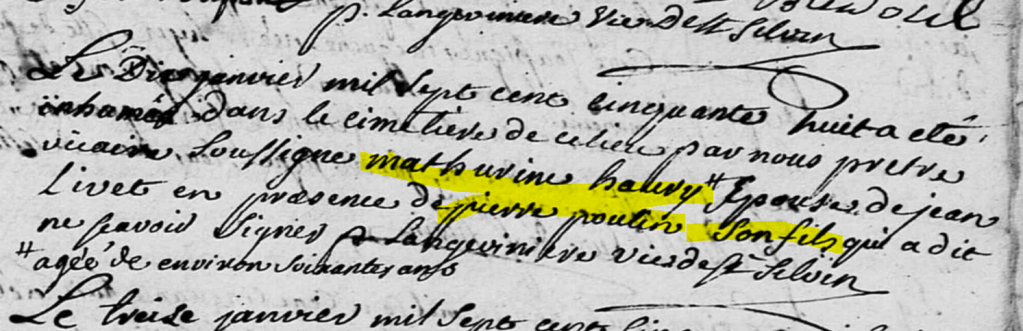 p. Langeviniere vic. de St Selvin
Le Dix janvier mil sept cent cinquante huit a eté
inhamée dans le cimetiere de ce lieu par nous pretre
vicaire soussigné mathurine haury # Epouse de jean
Livet en presence de pierre poulin son fils qui a dit
ne scavoir signer p. Langeviniere vic. de St Selvin
# agée de environ soixante ans
Le treize janvier mil sept cent cinq